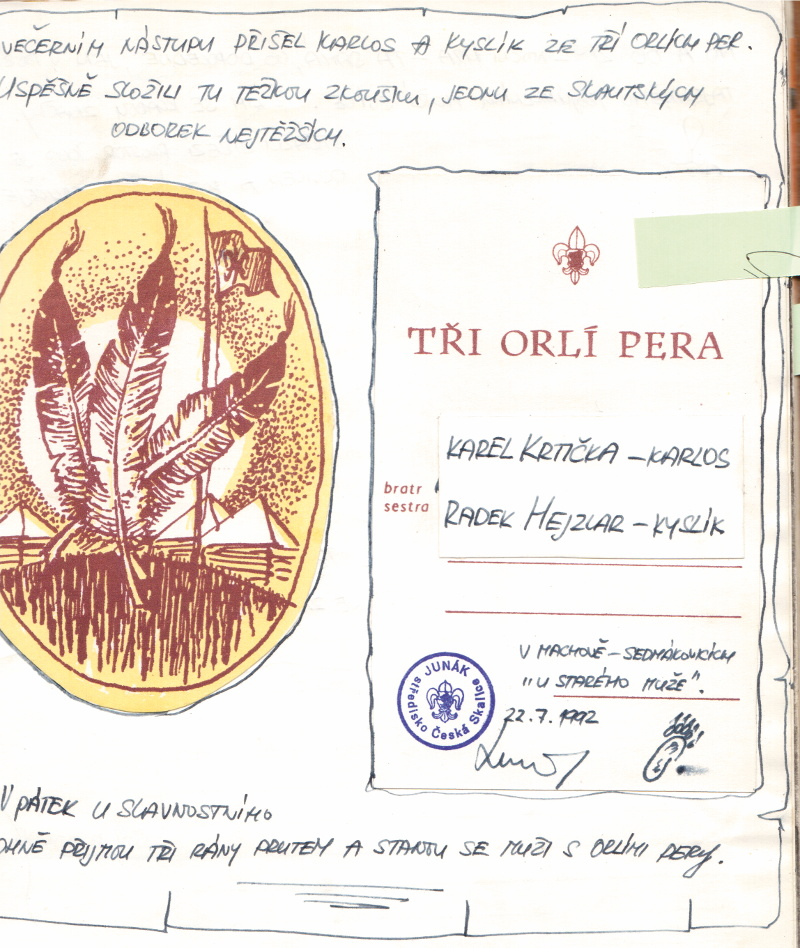 VEČERNÍM NÁSTUPU PŘIŠEL KARLOS A KYSLÍK ZE TŘÍ ORLÍCH PER.
ÚSPĚŠNĚ SLOŽILI TU TĚŽKOU ZKOUŠKU, JEDNU ZE SKAUTSKÝCH
ODBOREK NEJTĚŽŠÍCH.
TŘI ORLÍ PERA
KAREL KRTIČKA – KARLOS
bratr
sestra
RADEK HEJZLAR – KYSLÍK
V MACHOVĚ – SEDMÁKOVICÍCH
"U STARÉHO MUŽE".
22.7.1992
JUNÁK
středisko Česká Skalice
V PÁTEK U SLAVNOSTNÍHO
OHNĚ PŘIJMOU TŘI RÁNY PRUTEM A STANOU SE MUŽI S ORLÍMI PERY.